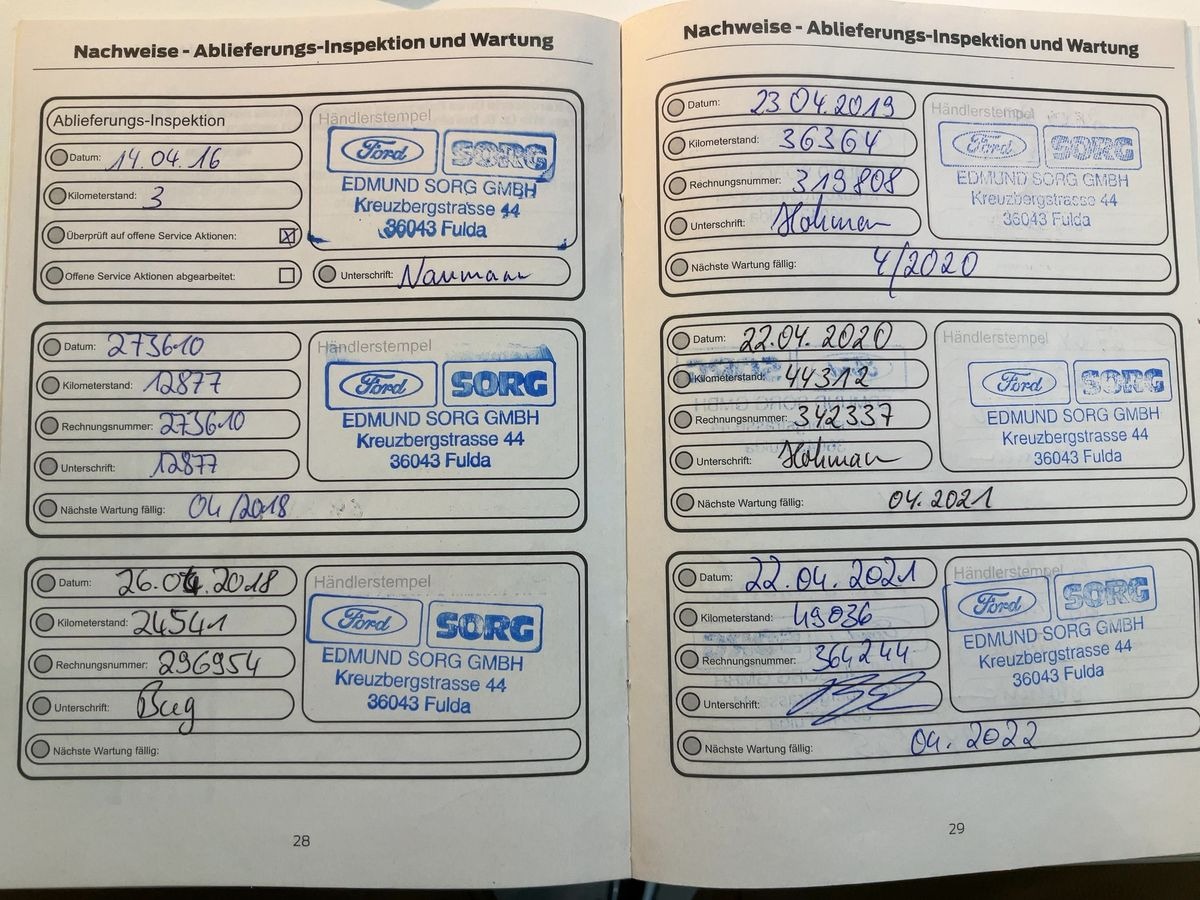 Nachweise - Ablieferungs-Inspektion und Wartung
Ablieferungs-Inspektion
Datum: 14.04.16
Kilometerstand: 3
Überprüft auf offene Service Aktionen: X
Offene Service Aktionen abgearbeitet:
Händlerstempel
Ford SORG
EDMUND SORG GMBH
Kreuzbergstrasse 44
36043 Fulda
Unterschrift: Naumann
Datum: 273610
Kilometerstand: 12877
Rechnungsnummer: 273610
Unterschrift: 12877
Händlerstempel
Ford SORG
EDMUND SORG GMBH
Kreuzbergstrasse 44
36043 Fulda
Nächste Wartung fällig: 04/2018
Datum: 26.04.2018
Kilometerstand: 24541
Rechnungsnummer: 296954
Unterschrift:
Händlerstempel
Ford SORG
EDMUND SORG GMBH
Kreuzbergstrasse 44
36043 Fulda
Nächste Wartung fällig:
28
Nachweise - Ablieferungs-Inspektion und Wartung
Datum: 23.04.2019
Kilometerstand: 36364
Rechnungsnummer: 319808
Unterschrift: Hohman
Händlerstempel
Ford SORG
EDMUND SORG GMBH
Kreuzbergstrasse 44
36043 Fulda
Nächste Wartung fällig: 4/2020
Datum: 22.04.2020
Kilometerstand: 44312
Rechnungsnummer: 342337
Unterschrift: Hohman
Händlerstempel
Ford SORG
EDMUND SORG GMBH
Kreuzbergstrasse 44
36043 Fulda
Nächste Wartung fällig: 04.2021
Datum: 22.04.2021
Kilometerstand: 49036
Rechnungsnummer: 364244
Unterschrift:
Händlerstempel
Ford SORG
EDMUND SORG GMBH
Kreuzbergstrasse 44
36043 Fulda
Nächste Wartung fällig: 04.2022
29